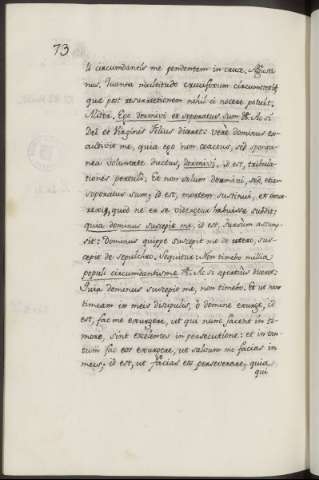 73
li circumdantis me pendentem in cruce. Alusa
nus, Quanta multitudo crucifixum circumscripsit
que post resurrectionem nihil ei nocere potuit.
Altra. Ego dormivi et soporatus sum &. Ac si
dei et Virginis Filius diceret: vere dominus ex-
audivit me, quia ego non coactus, sed sponta-
nea voluntate ductus, dormivi, id est, tribula-
tiones pertuli. Et non solum dormivi, sed etiam
soporatus sum; id est, mortem sustinui, et exur-
rexi, quid ne ex se videretur habuisse subdit:
quia dominus suscepit me, id est, sursum assump-
sit: Dominus quippe suscepit me de utero, sus-
cepit de sepulchro. Sequitur Non timebo millia
populi circumdantis me &. Ac si apertius diceret:
Quia dominus suscepit me, non timebo. Et ut non
timeam in meis discipulis, o domine exurge, id
est, fac me exurgere, ut qui nunc jacent in ti-
more, sint excelentes in persecutione: et in tan-
tum fac eos exurgere, ut salvum me facias in
meis; id est, ut facias eos perseverare, quia
qui